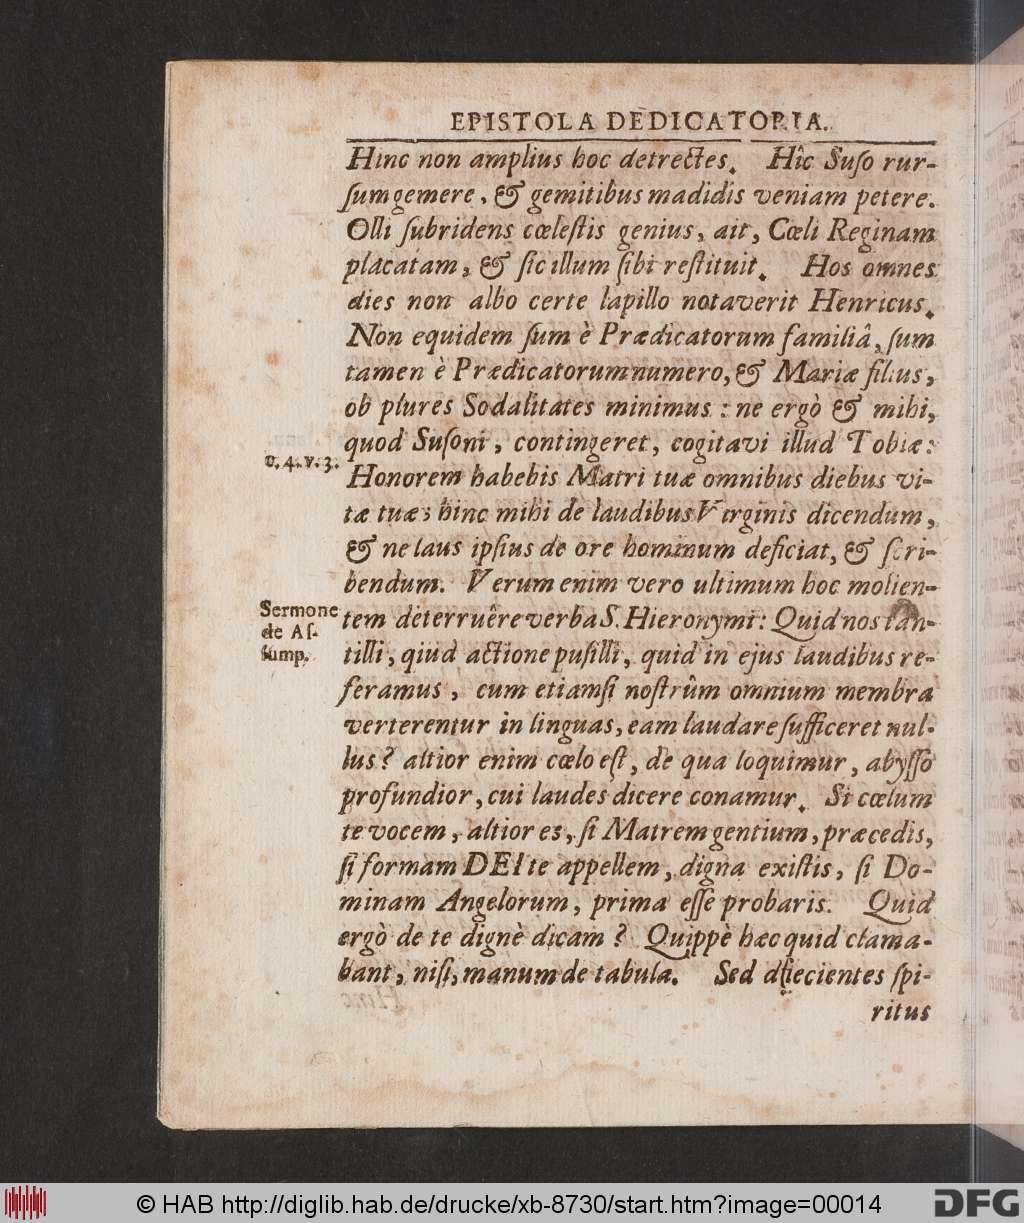 EPISTOLA DEDICATORIA.
Hinc non amplius hoc detrectes. Hîc Suſo rur-
ſum gemere, & gemitibus madidis veniam petere.
Olli ſubridens cœleſtis genius, ait, Cœli Reginam
placatam, & ſic illum ſibi reſtituit. Hos omnes
dies non albo certe lapillo notaverit Henricus.
Non equidem ſum è Prædicatorum familiâ, ſum
tamen è Prædicatorum numero, & Mariæ filius,
ob plures Sodalitates minimus: ne ergò & mihi,
quod Suſoni, contingeret, cogitavi illud Tobiæ:
c. 4. v. 3.
Honorem habebis Matri tuæ omnibus diebus vi-
tæ tuæ; hinc mihi de laudibus Virginis dicendum,
& ne laus ipſius de ore hominum deficiat, & ſcri-
bendum. Verum enim vero ultimum hoc molien-
Sermone
de Aſ-
ſump.
tem deterruêre verba S. Hieronymi: Quid nos tan-
tilli, qiud actione puſilli, quid in ejus laudibus re-
feramus, cum etiamſi noſtrûm omnium membra
verterentur in linguas, eam laudare ſufficeret nul-
lus? altior enim cœlo eſt, de qua loquimur, abyſſo
profundior, cui laudes dicere conamur. Si cœlum
te vocem, altior es, ſi Matrem gentium, præcedis,
ſi formam DEI te appellem, digna exiſtis, ſi Do-
minam Angelorum, prima eſſe probaris. Quid
ergò de te dignè dicam? Quippè hæc quid clama-
bant, niſi, manum de tabula. Sed dſiecientes ſpi-
ritus
© HAB http://diglib.hab.de/drucke/xb-8730/start.htm?image=00014
DFG